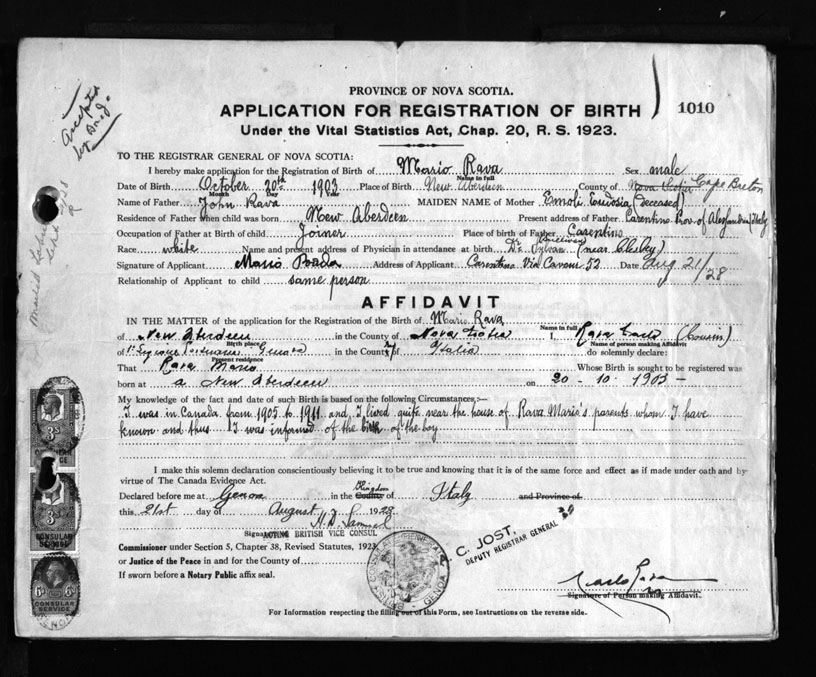 Accepted
by
PROVINCE OF NOVA SCOTIA.
APPLICATION FOR REGISTRATION OF BIRTH
1010
Under the Vital Statistics Act, Chap. 20, R. S. 1923.
TO THE REGISTRAR GENERAL OF NOVA SCOTIA:
I hereby make application for the Registration of Birth of Mario Rava Sex male
Name in full
Date of Birth October 20th 1903 Place of Birth New Aberdeen County of Nova Scotia Cape Breton
Month Day Year
Name of Father John Rava MAIDEN NAME of Mother Emoli (Deceased)
Residence of Father when child was born New Aberdeen Present address of Father Carentino Prov. of Alessandria Italy
Occupation of Father at Birth of child Joiner Place of birth of Father Carentino
Race white Name and present address of Physician in attendance at birth Dr. (near
Signature of Applicant Mario Address of Applicant Carentino Via Cavour 52 Date Aug 21/28
Relationship of Applicant to child same person
AFFIDAVIT
IN THE MATTER of the application for the Registration of the Birth of Mario Rava
Name in full
of New Aberdeen in the County of Nova Scotia I, Rava Carlo (Cousin)
Birth place Name of person making Affidavit
of Genova in the County of Italia do solemnly declare:
Present residence
That Rava Mario Whose Birth is sought to be registered was
born at a New Aberdeen on 20 - 10 - 1903 -
My knowledge of the fact and date of such Birth is based on the following Circumstances :-
I was in Canada from 1905 to 1911 and I lived quite near the house of Rava Mario's parents whom I have
known and thus I was informed of the birth of the boy
I make this solemn declaration conscientiously believing it to be true and knowing that it is of the same force and effect as if made under oath and by
virtue of The Canada Evidence Act.
Declared before me at Genoa in the Kingdom County of Italy and Province of
this 21st day of August 1928
Signature ACTING BRITISH VICE CONSUL
Commissioner under Section 5, Chapter 38, Revised Statutes, 1923,
or Justice of the Peace in and for the County of
If sworn before a Notary Public affix seal.
C. JOST,
DEPUTY REGISTRAR GENERAL
GENOA
Carlo Rava
Signature of Person making Affidavit.
For Information respecting the filling out of this Form, see Instructions on the reverse side.
3s
CONSULAR SERVICE
3s
CONSULAR SERVICE
6s
CONSULAR SERVICE